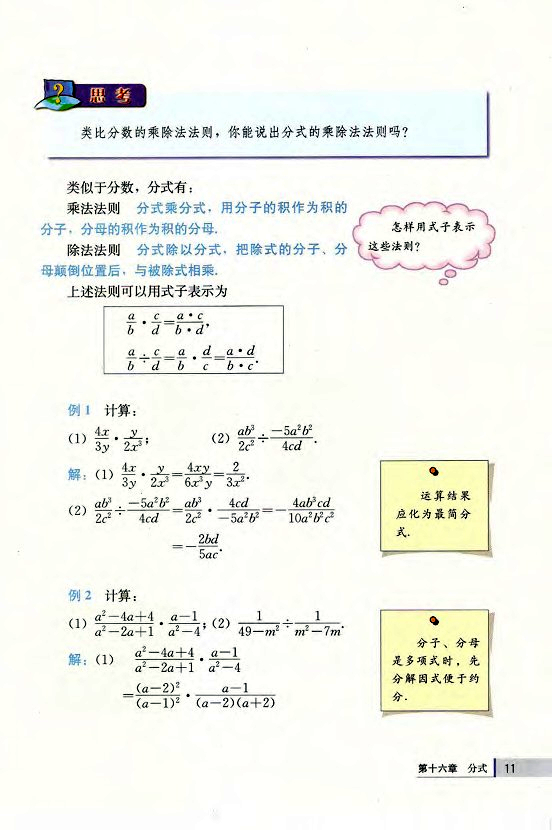 思考
类比分数的乘除法法则，你能说出分式的乘除法法则吗？
类似于分数，分式有：
乘法法则　分式乘分式，用分子的积作为积的
分子，分母的积作为积的分母.
除法法则　分式除以分式，把除式的分子、分
母颠倒位置后，与被除式相乘.
上述法则可以用式子表示为
怎样用式子表示
这些法则？
a/b · c/d = a·c/b·d,
a/b ÷ c/d = a/b · d/c = a·d/b·c.
例1　计算：
(1) 4x/3y · y/2x³；　(2) ab³/2c² ÷ −5a²b²/4cd.
解：(1) 4x/3y · y/2x³ = 4xy/6x³y = 2/3x².
(2) ab³/2c² ÷ −5a²b²/4cd = ab³/2c² · 4cd/−5a²b² = − 4ab³cd/10a²b²c²
= − 2bd/5ac.
运算结果
应化为最简分
式.
例2　计算：
(1) a²−4a+4/a²−2a+1 · a−1/a²−4；(2) 1/49−m² ÷ 1/m²−7m.
解：(1) a²−4a+4/a²−2a+1 · a−1/a²−4
= (a−2)²/(a−1)² · a−1/(a−2)(a+2)
分子、分母
是多项式时，先
分解因式便于约
分.
第十六章　分式　11